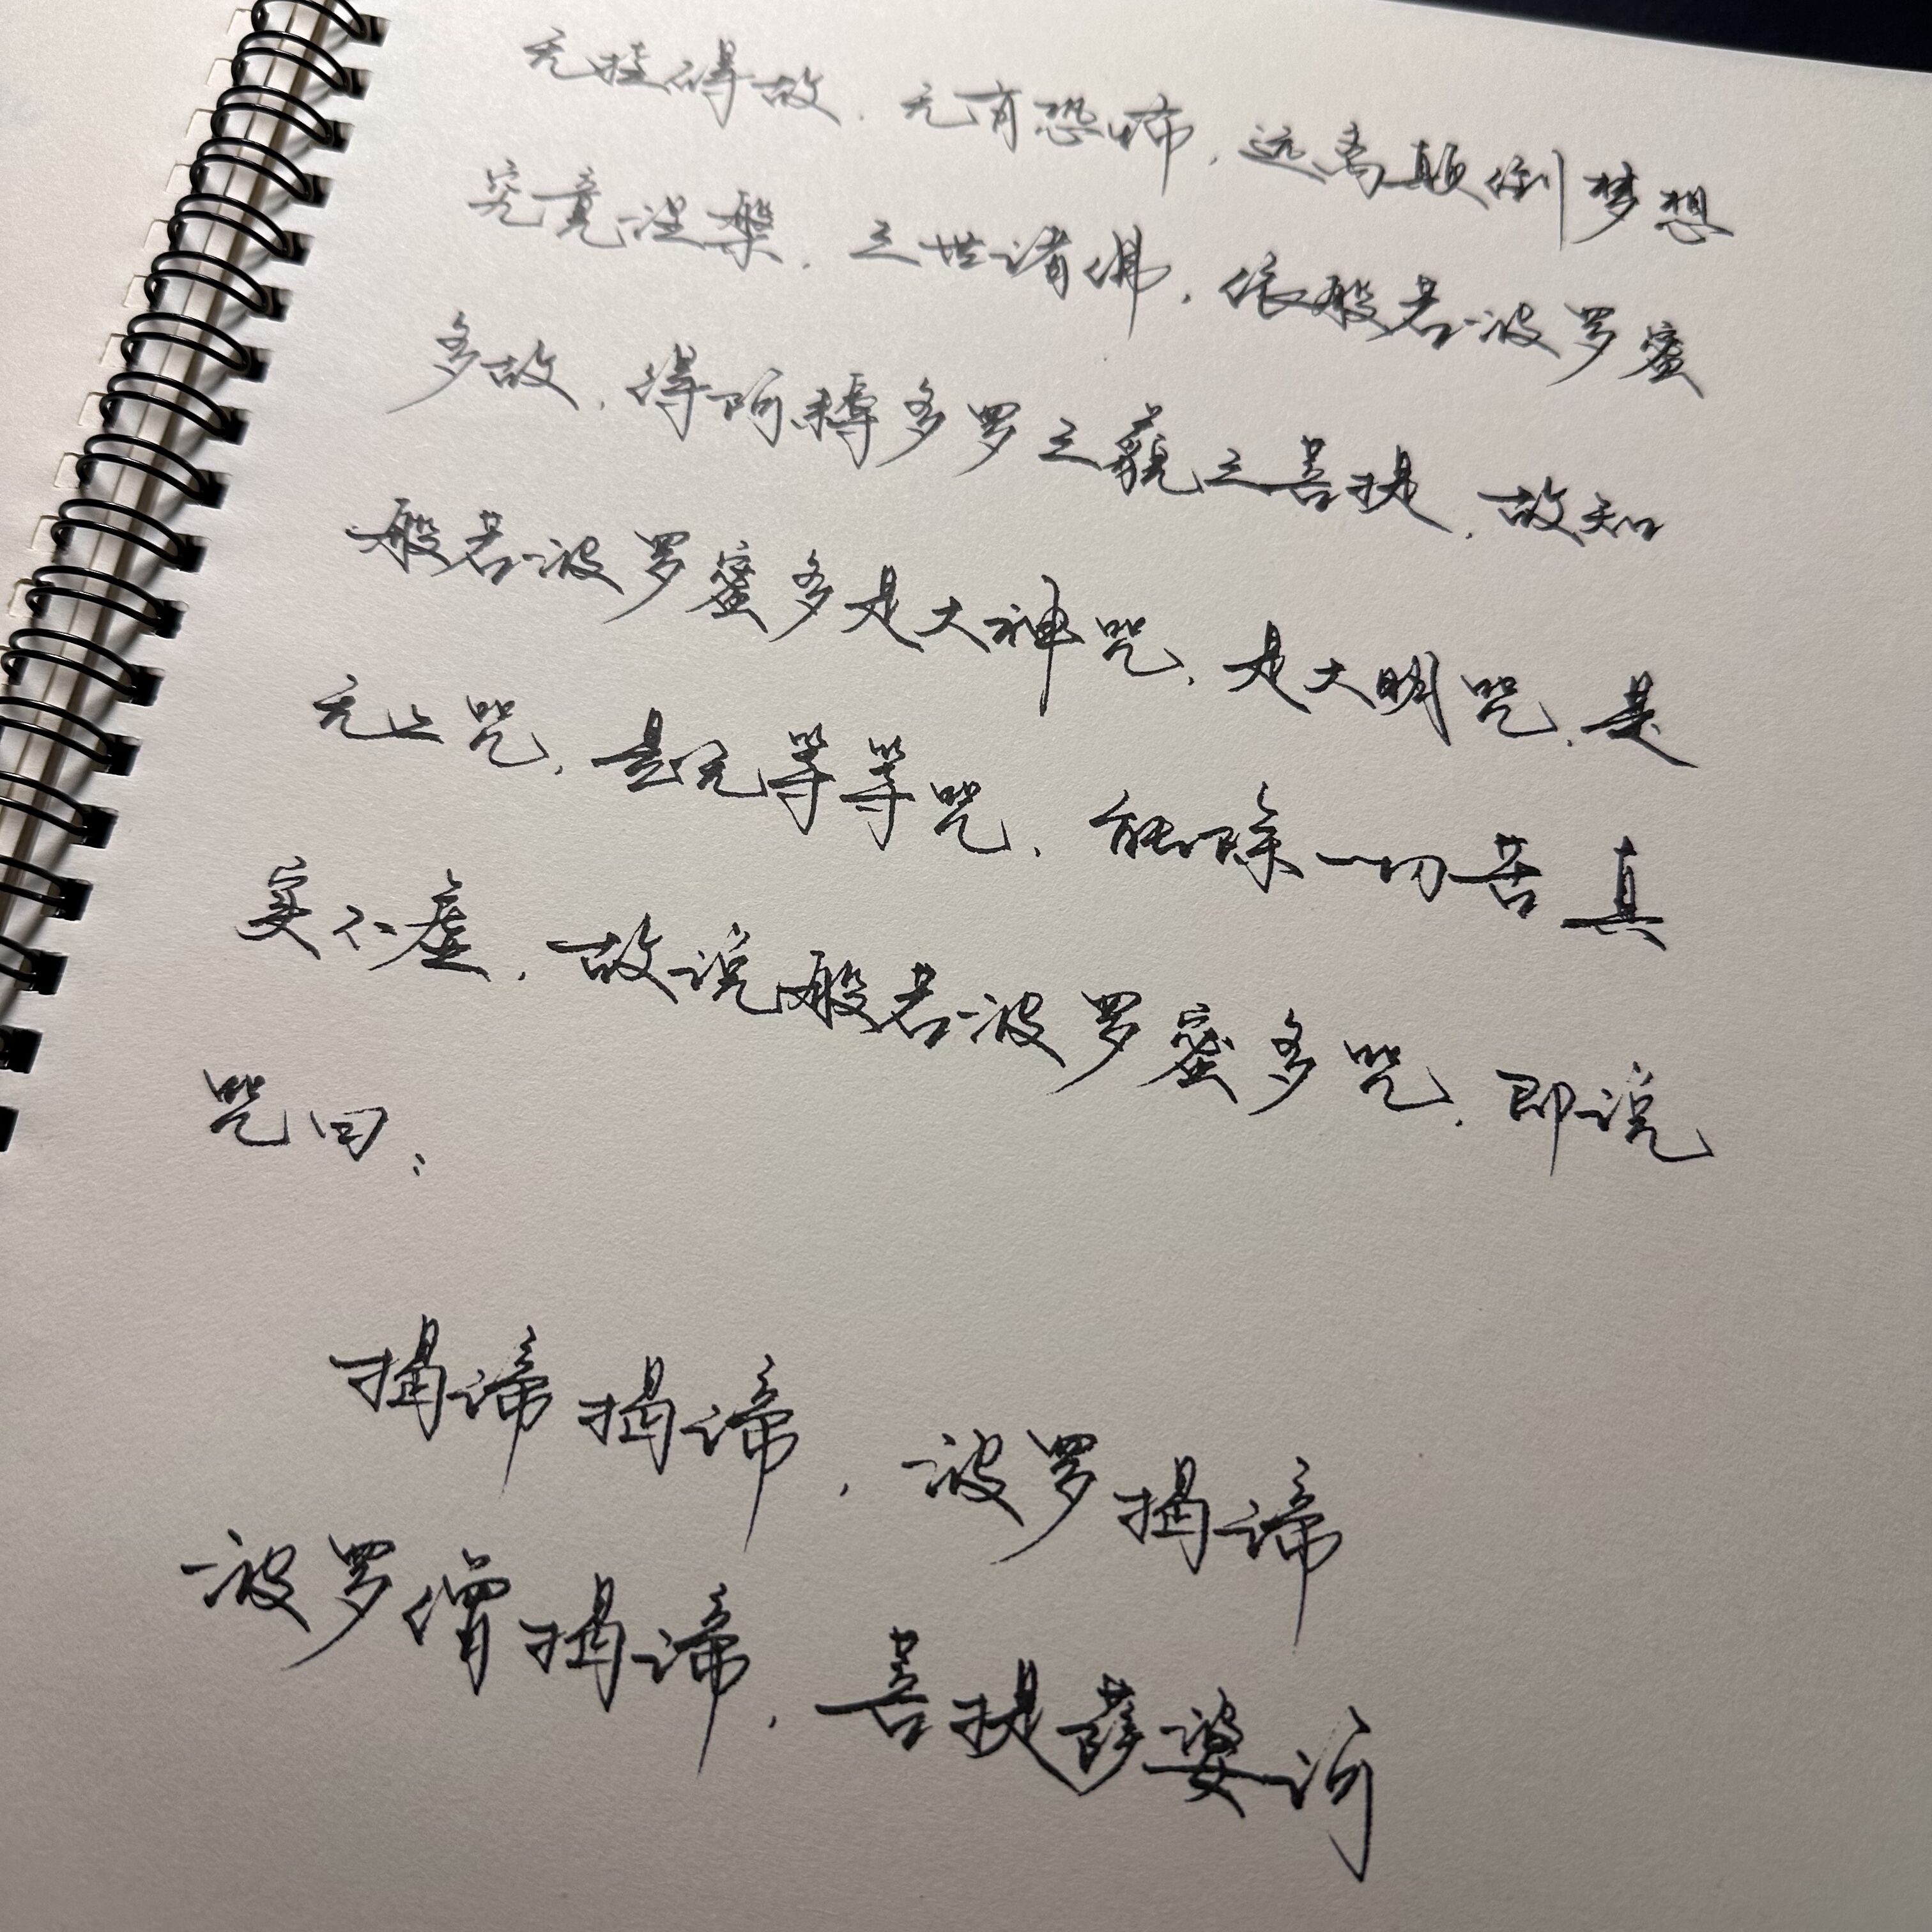 无挂碍故，无有恐怖，远离颠倒梦想
究竟涅槃，三世诸佛，依般若波罗蜜
多故，得阿耨多罗三藐三菩提，故知
般若波罗蜜多是大神咒，是大明咒，是
无上咒，是无等等咒，能除一切苦真
实不虚，故说般若波罗蜜多咒，即说
咒曰：
揭谛揭谛，波罗揭谛
波罗僧揭谛，菩提薩婆诃